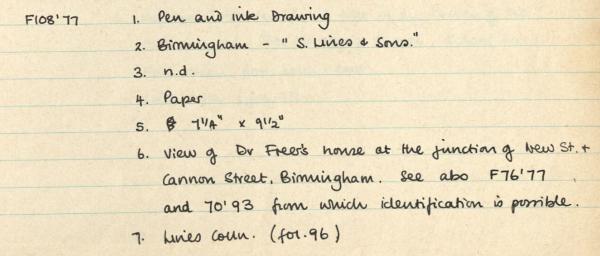 F108'77 1. Pen and ink Drawing
2. Birmingham - "S. Lines & Sons."
3. n.d.
4. Paper
5. 7 1/4" x 9 1/2"
6. View of Dr Freer's house at the junction of New St. +
Cannon Street, Birmingham. See also F76'77
and 70'93 from which identification is possible.
7. Lines Coun. (for. 96)